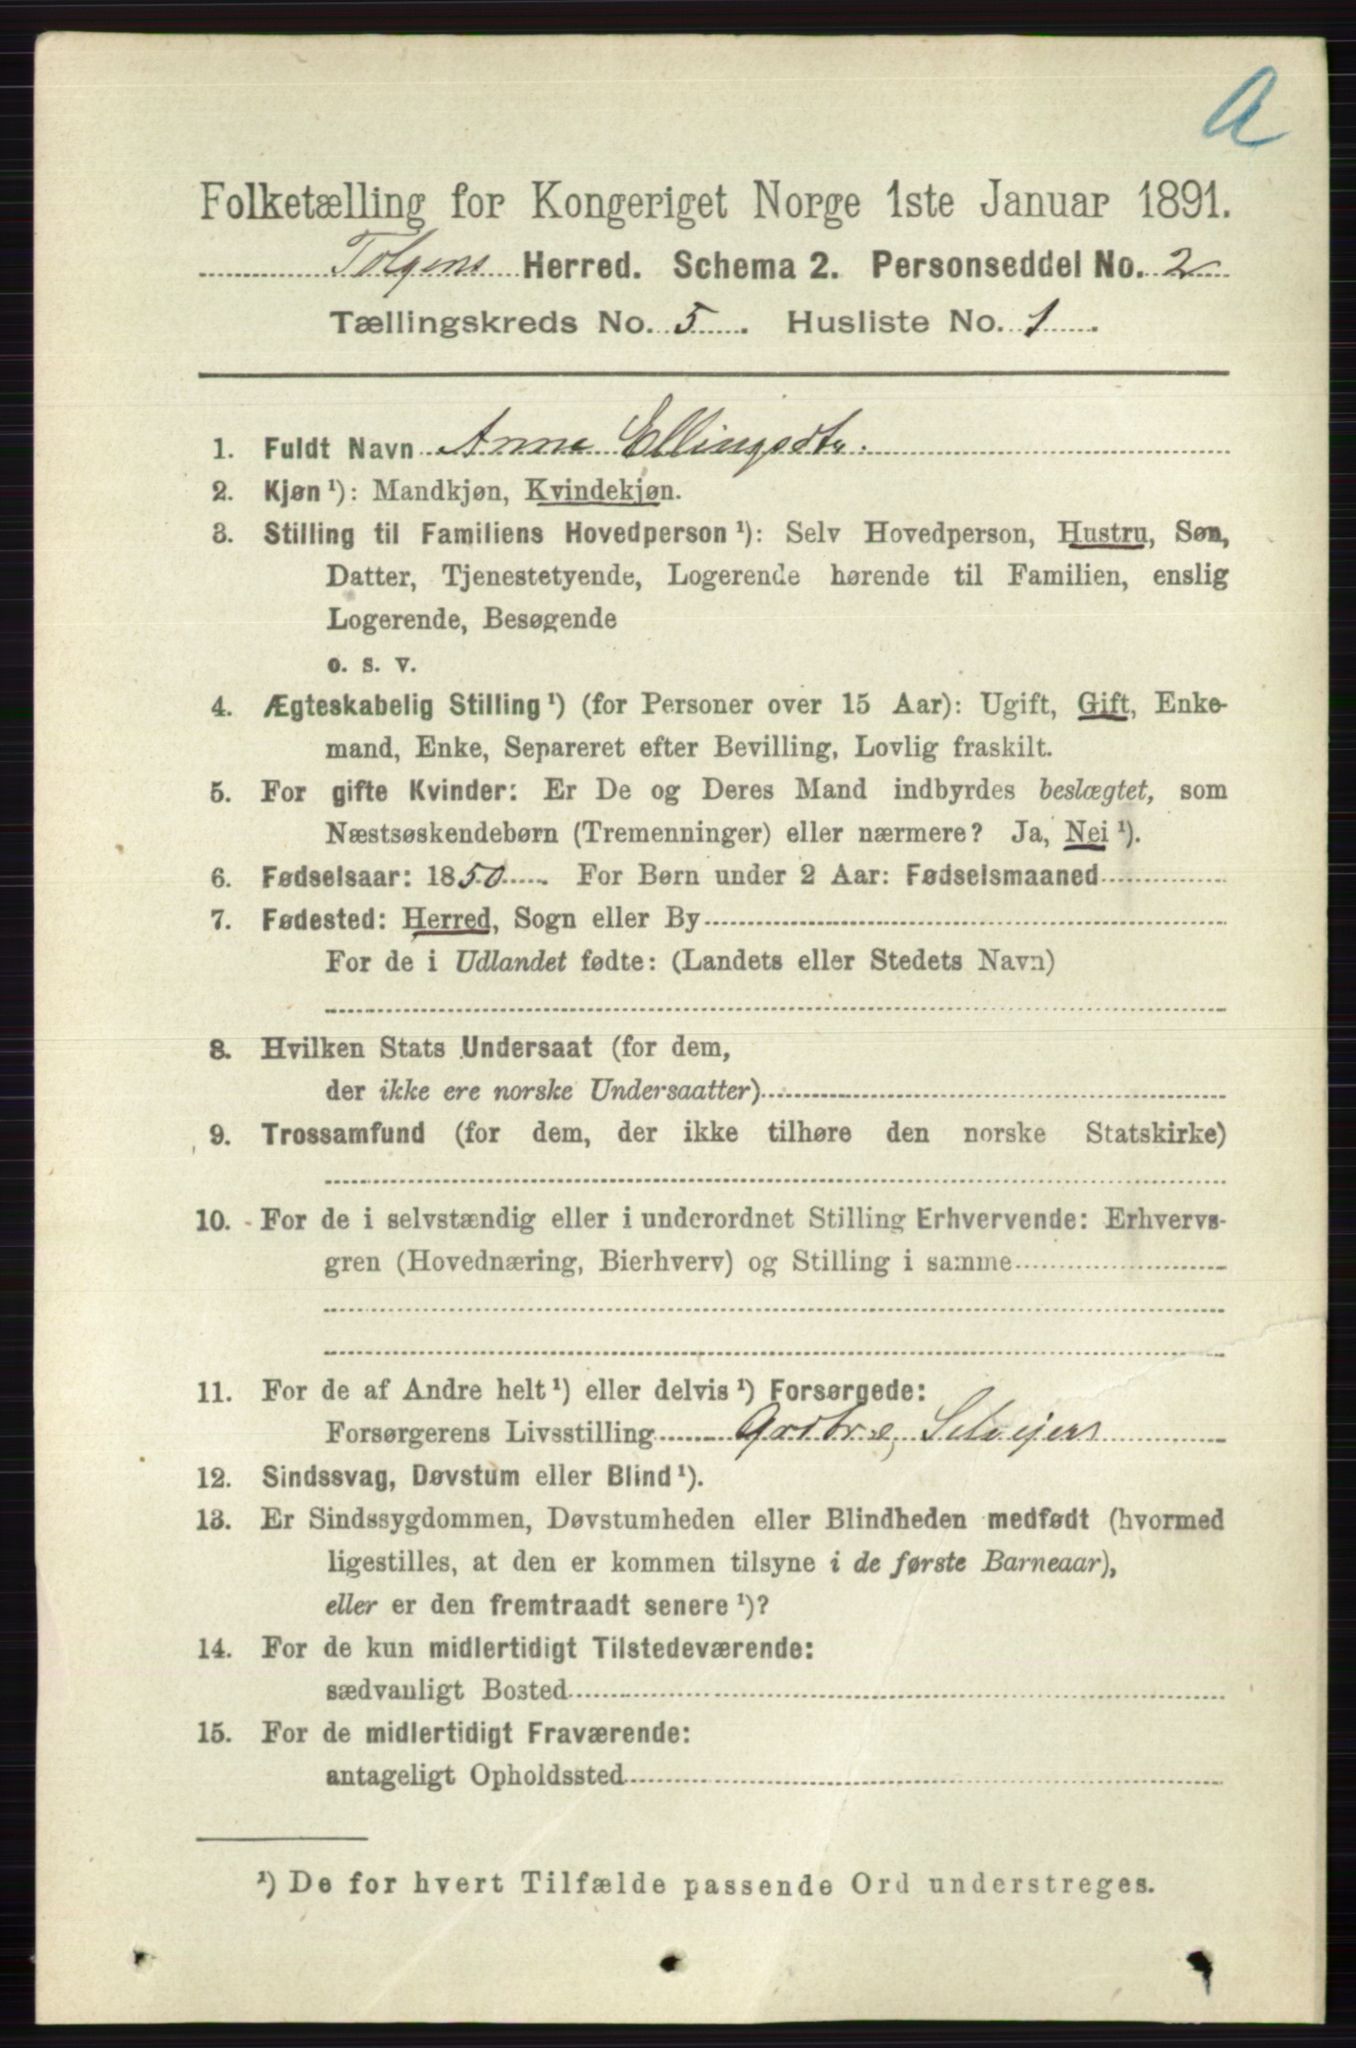 A
Folketælling for Kongeriget Norge 1ste Januar 1891.
Tolgens Herred. Schema 2. Personseddel No. 2
Tællingskreds No. 5. Husliste No. 1.
1. Fuldt Navn Anne Ellingsdtr.
2. Kjøn ¹): Mandkjøn, Kvindekjøn.
3. Stilling til Familiens Hovedperson ¹): Selv Hovedperson, Hustru, Søn,
Datter, Tjenestetyende, Logerende hørende til Familien, enslig
Logerende, Besøgende
o. s. v.
4. Ægteskabelig Stilling ¹) (for Personer over 15 Aar): Ugift, Gift, Enke-
mand, Enke, Separeret efter Bevilling, Lovlig fraskilt.
5. For gifte Kvinder: Er De og Deres Mand indbyrdes beslægtet, som
Næstsøskendebørn (Tremenninger) eller nærmere? Ja, Nei ¹).
6. Fødselsaar: 1850. For Børn under 2 Aar: Fødselsmaaned
7. Fødested: Herred, Sogn eller By
For de i Udlandet fødte: (Landets eller Stedets Navn)
8. Hvilken Stats Undersaat (for dem,
der ikke ere norske Undersaatter)
9. Trossamfund (for dem, der ikke tilhøre den norske Statskirke)
10. For de i selvstændig eller i underordnet Stilling Erhvervende: Erhvervs-
gren (Hovednæring, Bierhverv) og Stilling i samme
11. For de af Andre helt ¹) eller delvis ¹) Forsørgede:
Forsørgerens Livsstilling Grdbr. Selvejers
12. Sindssvag, Døvstum eller Blind ¹).
13. Er Sindssygdommen, Døvstumheden eller Blindheden medfødt (hvormed
ligestilles, at den er kommen tilsyne i de første Barneaar),
eller er den fremtraadt senere ¹)?
14. For de kun midlertidigt Tilstedeværende:
sædvanligt Bosted
15. For de midlertidigt Fraværende:
antageligt Opholdssted
¹) De for hvert Tilfælde passende Ord understreges.